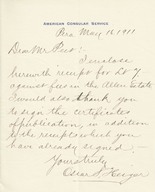 AMERICAN CONSULAR SERVICE
May 16 1911
Dear Mr
I enclose
herewith receipt for
against fees in the Allen Estate
I would also thank you
to sign the certificates
of publication, in addition
to the receipt which you
have already signed.
Yours truly,